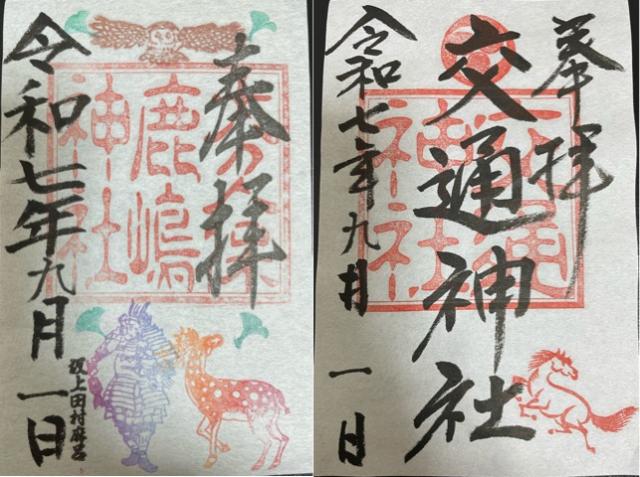 奉拝
鹿嶋
神社
令和七年九月一日
坂上田村麻呂
奉拝
交通神社
令和七年九月一日